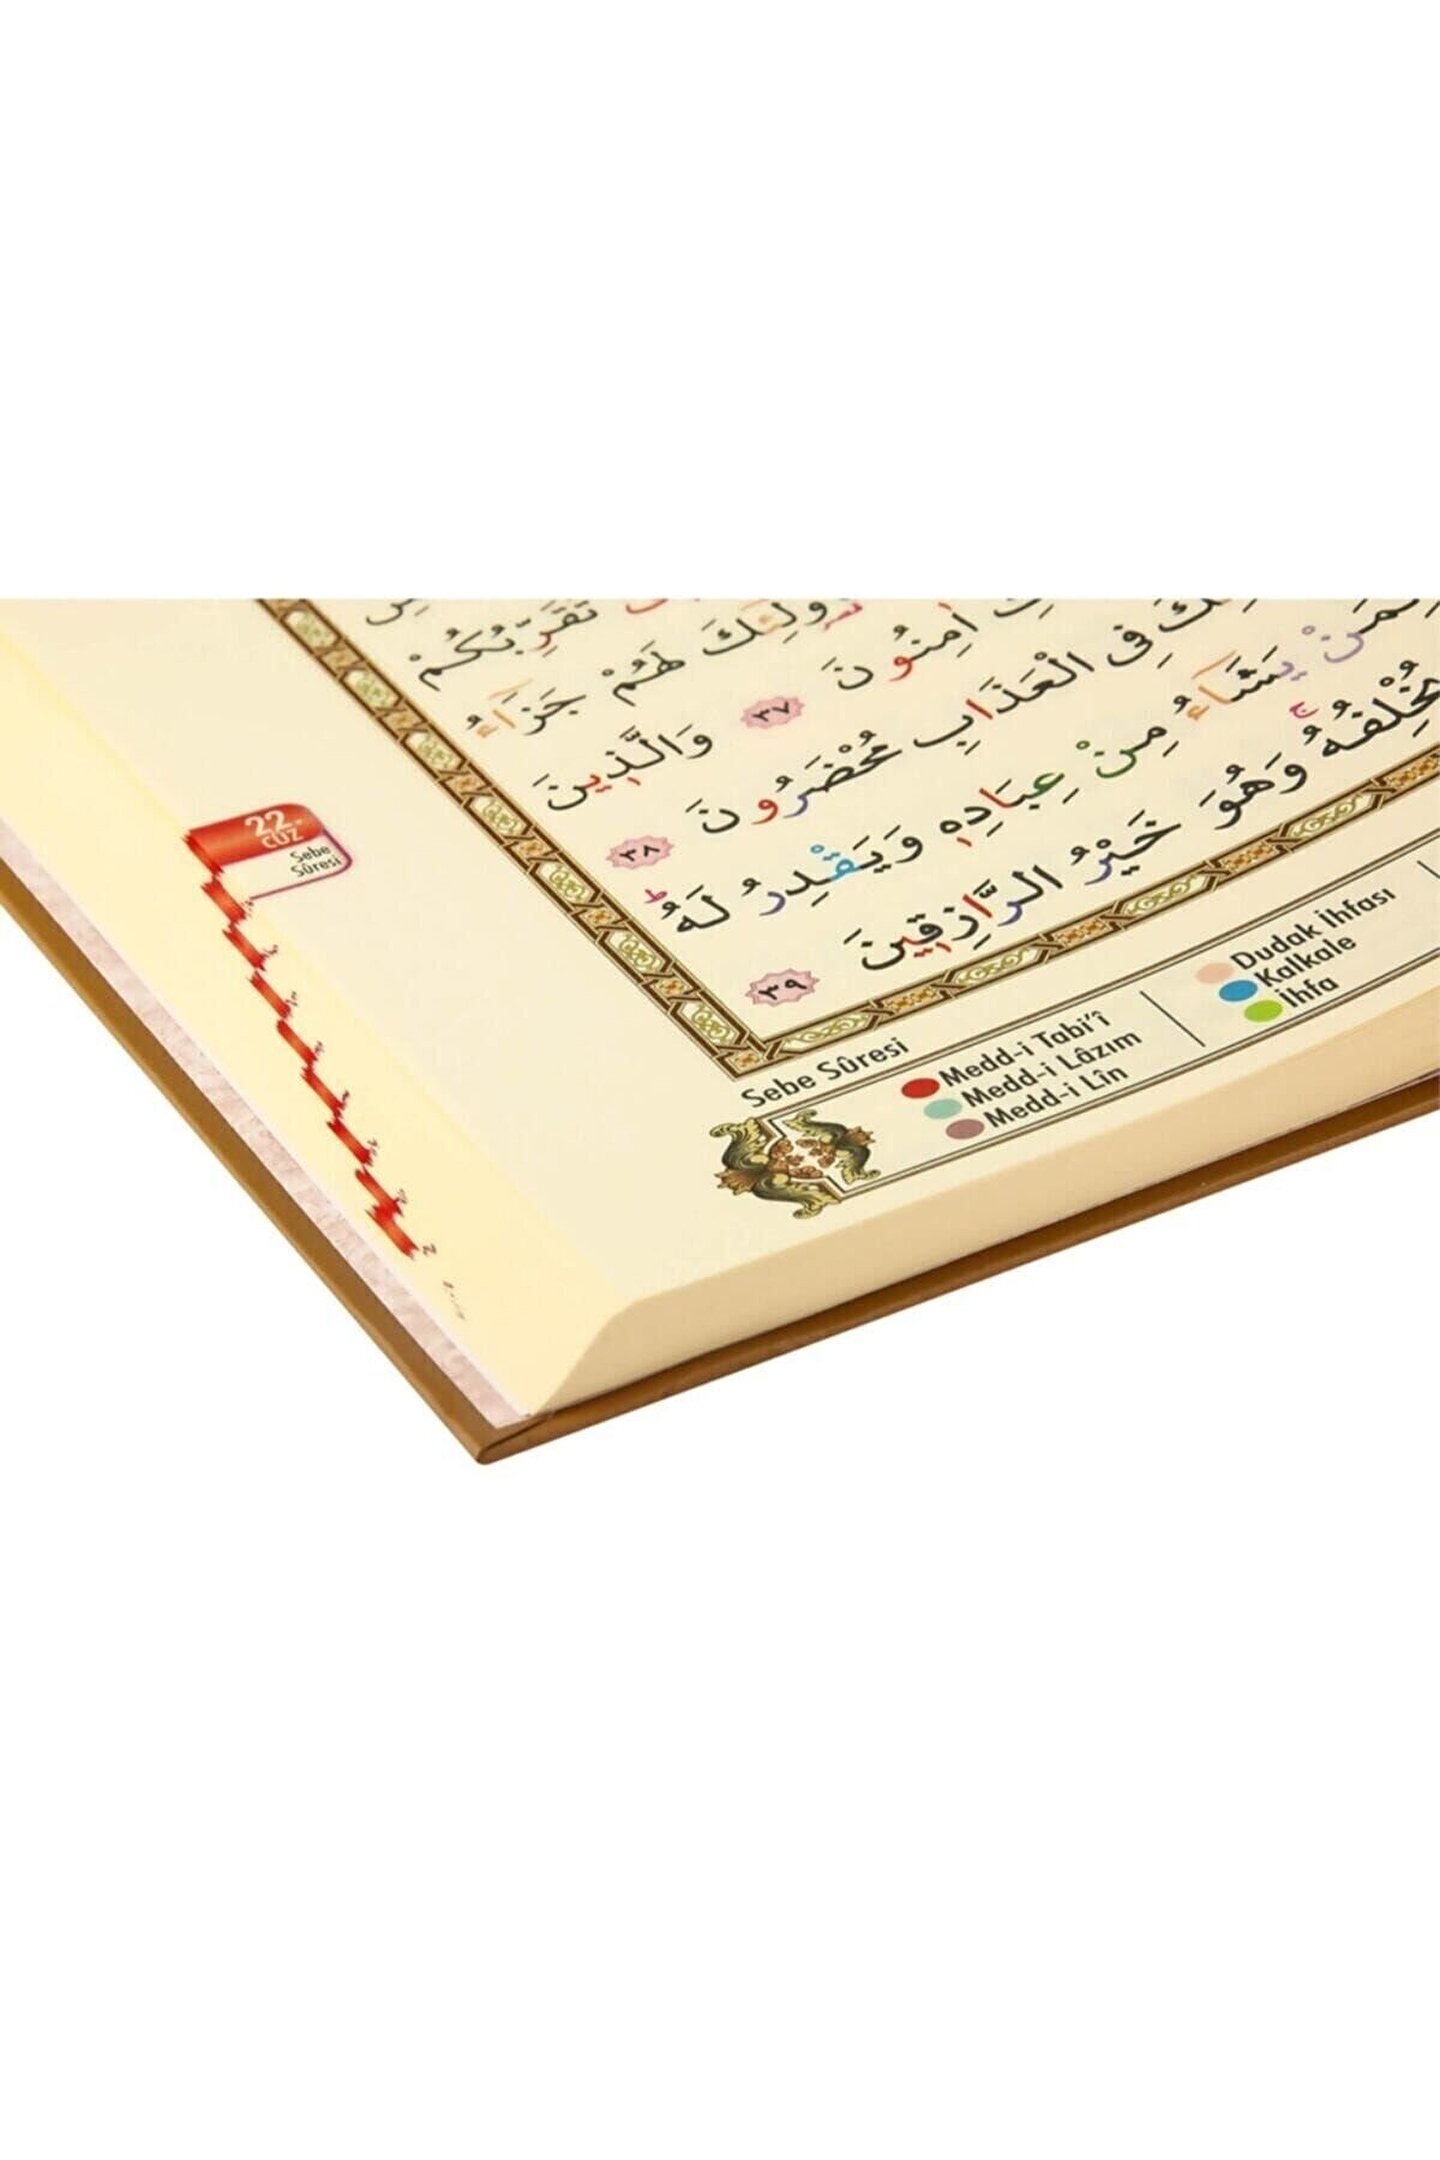 تُقَرِّبُكُمْ
لَهُمْ جَزَٓاءُ
اٰمِنُونَ ٣٧ وَالَّذ۪ينَ
فِي الْعَذَابِ مُحْضَرُونَ ٣٨
يَشَٓاءُ مِنْ عِبَادِه۪ وَيَقْدِرُ لَهُ ط
يُخْلِفُهُ ج وَهُوَ خَيْرُ الرَّازِق۪ينَ ٣٩
22.
CÜZ
Sebe
Sûresi
Sebe Sûresi
Medd-i Tabi'î
Medd-i Lâzım
Medd-i Lîn
Dudak İhfası
Kalkale
İhfa